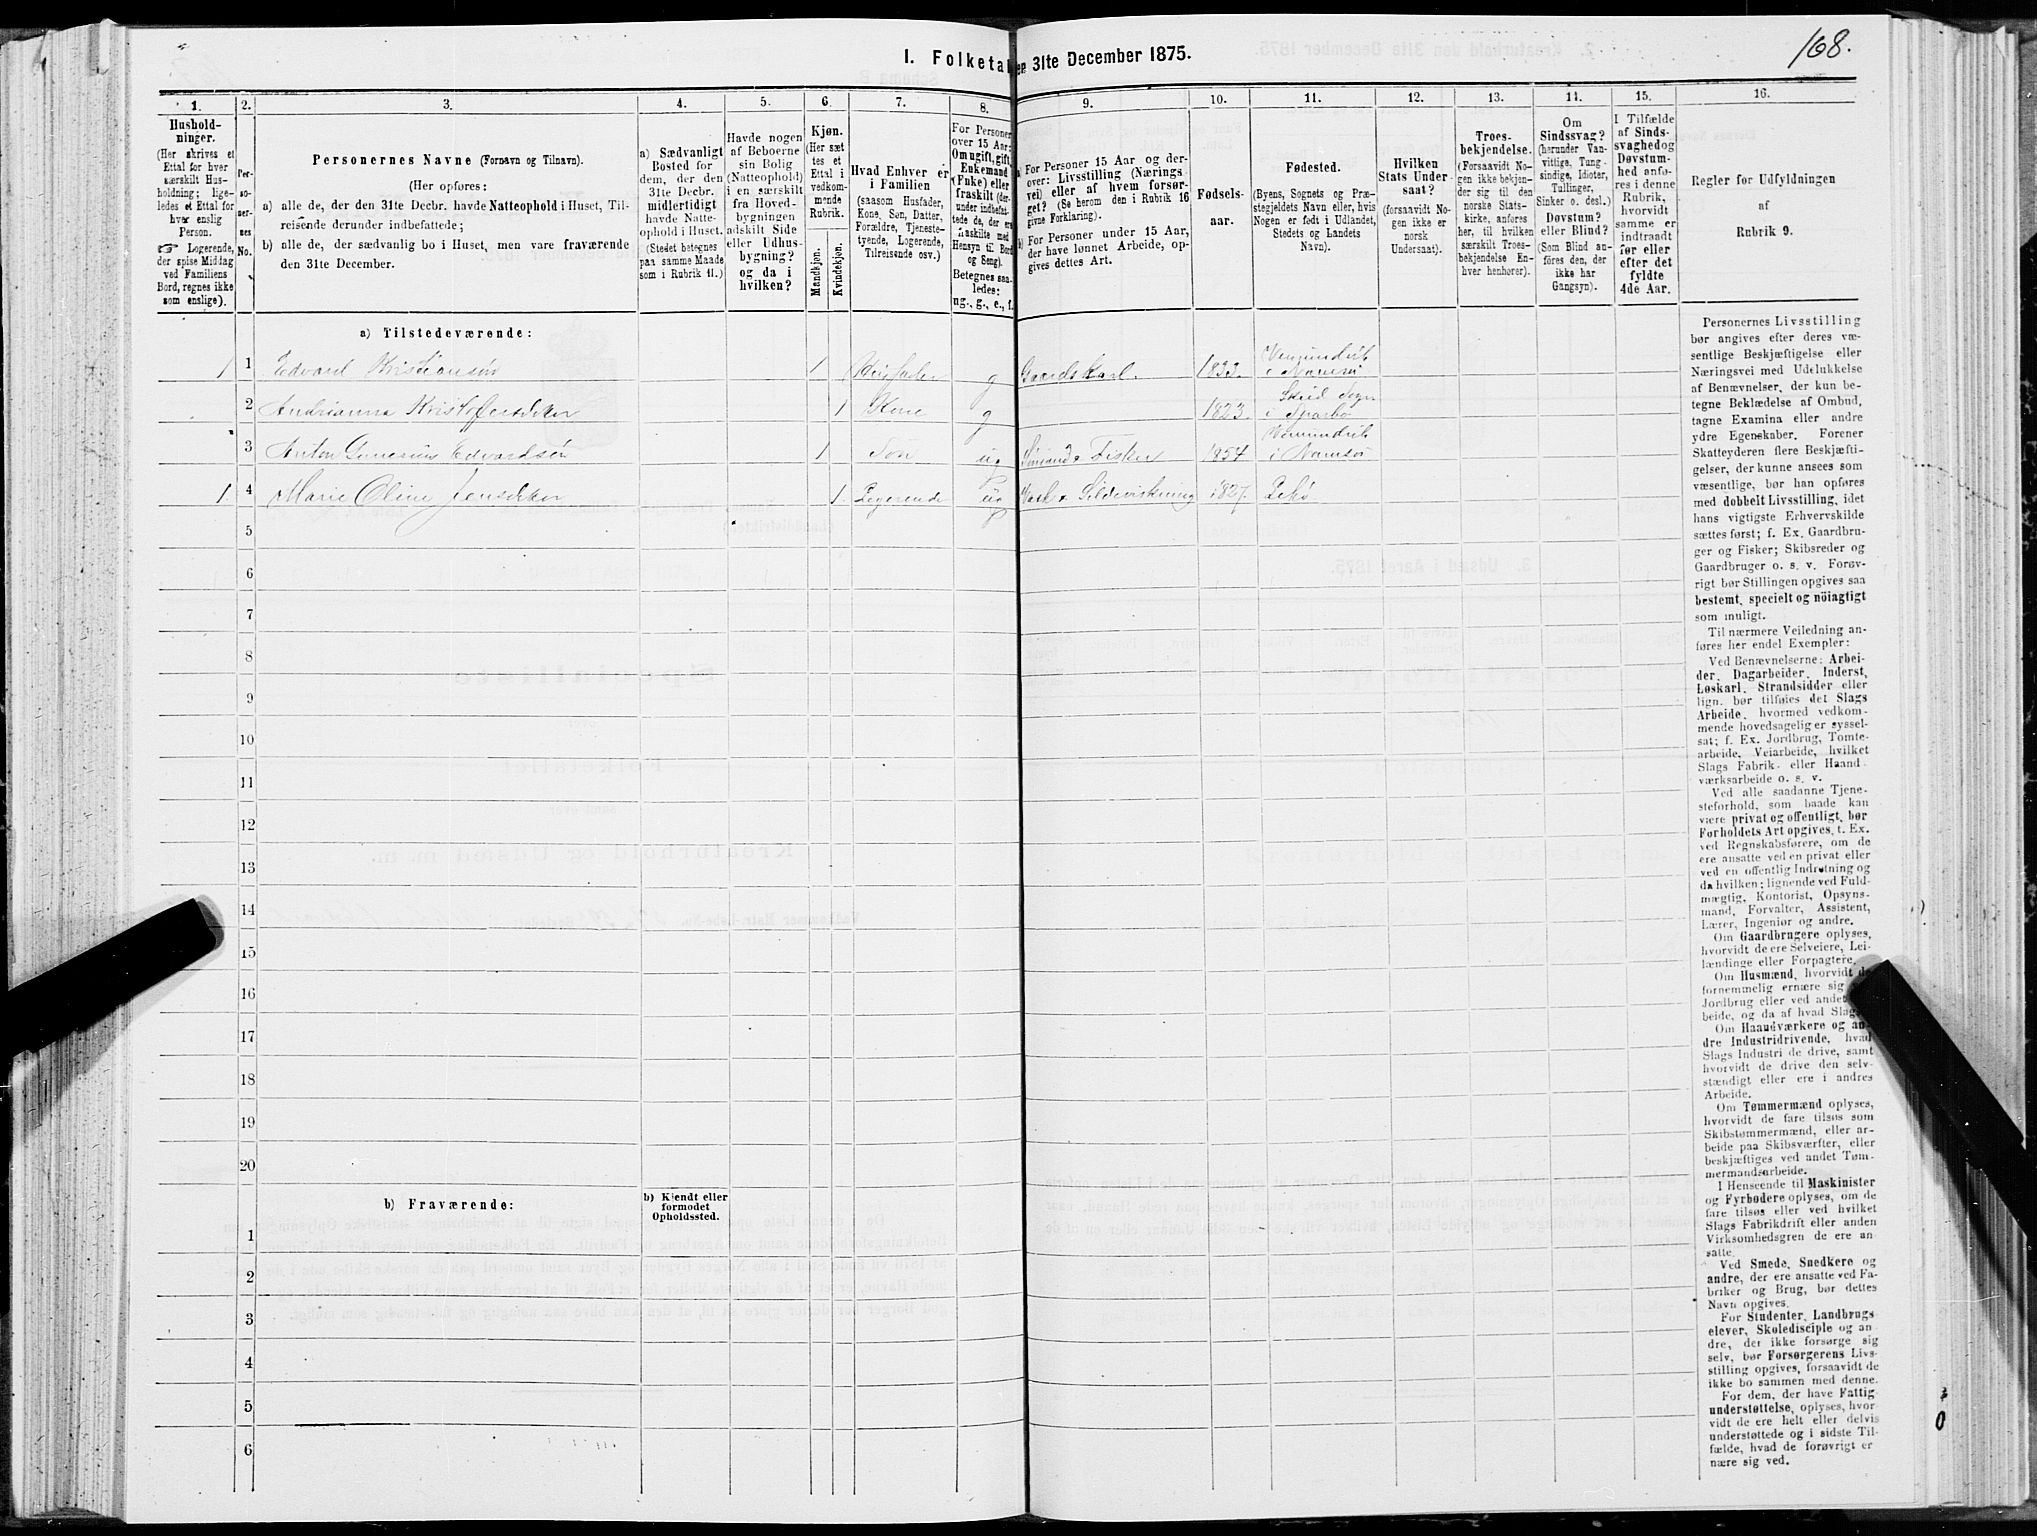 168.
I. Folketal
en 31te December 1875.
1. 2. 3. 4. 5. 6. 7. 8. 9. 10. 11. 12. 13. 14. 15. 16.
Hushold-
ninger.
(Her skrives et
Ettal for hver
særskilt Hus-
holdning; lige-
ledes et Ettal for
hver enslig
Person.
☞ Logerende,
der spise Middag
ved Familiens
Bord, regnes ikke
som enslige).
Per-
so-
ner-
nes
No.
Personernes Navne (Fornavn og Tilnavn).
(Her opføres:
a) alle de, der den 31te Decbr. havde Natteophold i Huset, Til-
reisende derunder indbefattede;
b) alle de, der sædvanlig bo i Huset, men vare fraværende
den 31te December.
a) Sædvanligt
Bosted for
dem, der den
31te Decbr.
midlertidigt
havde Natte-
ophold i Huset.
(Stedet betegnes
paa samme Maade
som i Rubrik 11.)
Havde nogen
af Beboerne
sin Bolig
(Natteophold)
i en særskilt
fra Hoved-
bygningen
adskilt Side
eller Udhus-
bygning?
og da i
hvilken?
Kjøn.
(Her sæt
tes et
Ettal i
vedkom-
mende
Rubrik.
Mandkjøn.
Kvindekjøn.
Hvad Enhver er
i Familien
(saasom Husfader,
Kone, Søn, Datter,
Forældre, Tjeneste-
tyende, Logerende,
Tilreisende osv.)
For Personer
over 15 Aar:
Om ugift, gift,
Enkemand
(Enke) eller
fraskilt (der-
under indbefat-
tede de, der ere
fraskilte med
Hensyn til Bord
og Seng).
Betegnes saa-
ledes:
ug., g., e., f.
a) For Personer 15 Aar og der-
over: Livsstilling (Nærings
vei) eller af hvem forsør-
get? (Se herom den i Rubrik 16
givne Forklaring).
b) For Personer under 15 Aar,
der have lønnet Arbeide, op-
gives dettes Art.
Fødsels-
aar.
Fødested.
(Byens, Sognets og Præ-
stegjeldets Navn eller, hvis
Nogen er født i Udlandet,
Stedets og Landets
Navn).
Hvilken
Stats Under
saat?
(forsaavidt No-
gen ikke er
norsk
Undersaat).
Troes-
bekjendelse.
(Forsaavidt No-
gen ikke bekjen-
der sig til den
norske Stats-
kirke, anføres
her, til hvilken
særskilt Troes-
bekjendelse En-
hver henhører).
Om
Sindssvag?
(herunder Van-
vittige, Tung-
sindige, Idioter,
Tullinger,
Sinker o. desl.)
Døvstum?
eller Blind?
(Som Blind an-
føres den, der
ikke har
Gangsyn).
I Tilfælde
af Sinds-
svaghed og
Døvstum-
hed anfø-
res i denne
Rubrik,
hvorvidt
samme er
indtraadt
før eller
efter det
fyldte
4de Aar.
Regler for Udfyldningen
af
Rubrik 9.
a) Tilstedeværende:
1 1 Edvard Kristiansøn 1 Husfader g Gaardskarl. 1833. Vemundvik i Namsos
2 Andrianna Kristoffersdatter 1 Kone g 1823. Skeid Sogn i Sparbo
3 Anton Edvardsøn 1 Søn ug Fisker 1854 Vemundvik i Namsos
1. 4 Marie Oline Jensdatter 1. Logerende ug Vask & 1827. Lekø
5
6
7
8
9
10
11
12
13
14
15
16
17
18
19
20
b) Fraværende:
b) Kjendt eller
formodet
Opholdssted.
1
2
3
4
5
6
Personernes Livsstilling
bør angives efter deres væ-
sentlige Beskjæftigelse eller
Næringsvei med Udelukkelse
af Benævnelser, der kun be-
tegne Beklædelse af Ombud,
tagne Examina eller andre
ydre Egenskaber. Forener
Skatteyderen flere Beskjæfti-
gelser, der kunne ansees som
væsentlige, bør han opføres
med dobbelt Livsstilling, idet
hans vigtigste Erhvervskilde
sættes først; f. Ex. Gaardbru-
ger og Fisker; Skibsreder og
Gaardbruger o. s. v. Forøv-
rigt bør Stillingen opgives saa
bestemt, specielt og nöiagtigt
som muligt.
Til nærmere Veiledning an-
føres her endel Exempler:
Ved Benævnelserne: Arbei-
der, Dagarbeider, Inderst,
Løskarl, Strandsidder eller
lign. bør tilføies det Slags
Arbeide, hvormed vedkom-
mende hovedsagelig er syssel-
sat; f. Ex. Jordbrug, Tomte-
arbeide, Veiarbeide, hvilket
Slags Fabrik- eller Haand-
værksarbeide o. s. v.
Ved alle saadanne Tjene-
steforhold, som baade kan
være privat og offentligt, bør
Forholdets Art opgives, t. Ex.
ved Regnskabsførere, om de
ere ansatte ved en privat eller
ved en offentlig Indretning og
da hvilken; lignende ved Fuld-
mægtig, Kontorist, Opsyns-
mand, Forvalter, Assistent,
Lærer, Ingeniør og andre.
Om Gaardbrugere oplyses,
hvorvidt de ere Selveiere, Lei-
lændinge eller Forpagtere.
Om Husmænd, hvorvidt de
fornemmelig ernære sig
Jordbrug eller ved andet
beide, og da af hvad Slags
Om Haandværkere og an-
dre Industridrivende, hvad
Slags Industri de drive, samt
hvorvidt de drive den selv-
stændigt eller ere i andres
Arbeide.
Om Tømmermænd oplyses,
hvorvidt de fare tilsøs som
Skibstømmermænd, eller ar-
beide paa Skibsværfter, eller
beskjæftiges ved andet Tøm-
mermandsarbeide.
I Henseende til Maskinister
og Fyrbødere oplyses, om de
fare tilsøs eller ved hvilket
Slags Fabrikdrift eller anden
Virksomhedsgren de ere an-
satte.
Ved Smede, Snedkere og
andre, der ere ansatte ved Fa-
briker og Brug, bør dettes
Navn opgives.
For Studenter, Landbrugs
elever, Skoledisciple og an-
dre, der ikke forsørge sig
selv, bør Forsørgerens Livs-
stilling opgives, forsaavidt de
ikke bo sammen med denne.
For dem, der have Fattig-
understøttelse, oplyses, hvor-
vidt de ere helt eller delvis
understøttede og i sidste Til-
fælde, hvad de forøvrigt er
nære sig ved.